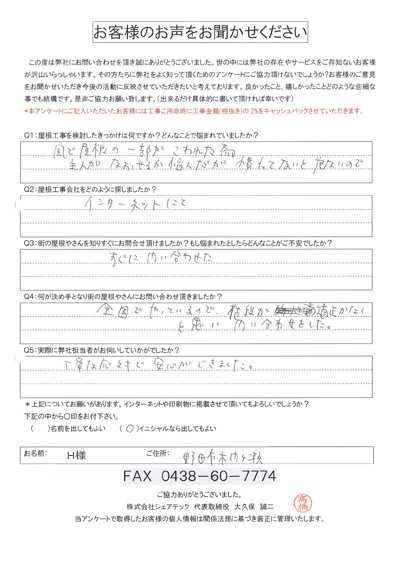 お客様のお声をお聞かせください
この度は弊社にお問い合わせを頂き誠にありがとうございました。世の中には弊社の存在やサービスをご存知ないお客様
が沢山いらっしゃいます。その方たちに弊社をよく知って頂くためのアンケートにご協力頂けないでしょうか?お客様のご意見
をお聞かせいただき今後の活動に反映させていただきたいと考えております。良かったこと、嬉しかったことどのような些細な
事でも結構です。是非ご協力お願い致します。(出来るだけ具体的に書いて頂ければ幸いです)
*本アンケートにご記入いただいたお客様には工事ご用命時に工事金額(税抜き)の2%をキャッシュバックさせていただきます。
Q1:屋根工事を検討したきっかけは何ですか?どんなことで悩まれていましたか?
風で屋根の一部がこわれた為
主人がなおせるか悩んだが慣れてないと危ないので
Q2:屋根工事会社をどのように探しましたか?
インターネットにて
Q3:街の屋根やさんを知りすぐにお問合せ頂けましたか?もし悩まれたとしたらどんなことがご不安でしたか?
すぐに問い合わせた
Q4:何が決め手となり街の屋根やさんにお問い合わせ頂きましたか?
全国でやっているので、値段が適正かなぁ
と思い問い合わせをした。
Q5:実際に弊社担当者がお伺いしていかがでしたか?
丁寧な応対で安心ができました。
*上記についてお願いがあります。インターネットや印刷物に掲載させて頂いてもよろしいでしょうか?
下記の中から〇印をお付下さい。
( )名前を出してもよい (○)イニシャルなら出してもよい
お名前: H様 ご住所: 野田市木間ケ瀬
FAX 0438-60-7774
ご協力ありがとうございました。
株式会社シェアテック 代表取締役 大久保 誠二
当アンケートで取得したお客様の個人情報は関係法規に基づき厳正に管理いたします。